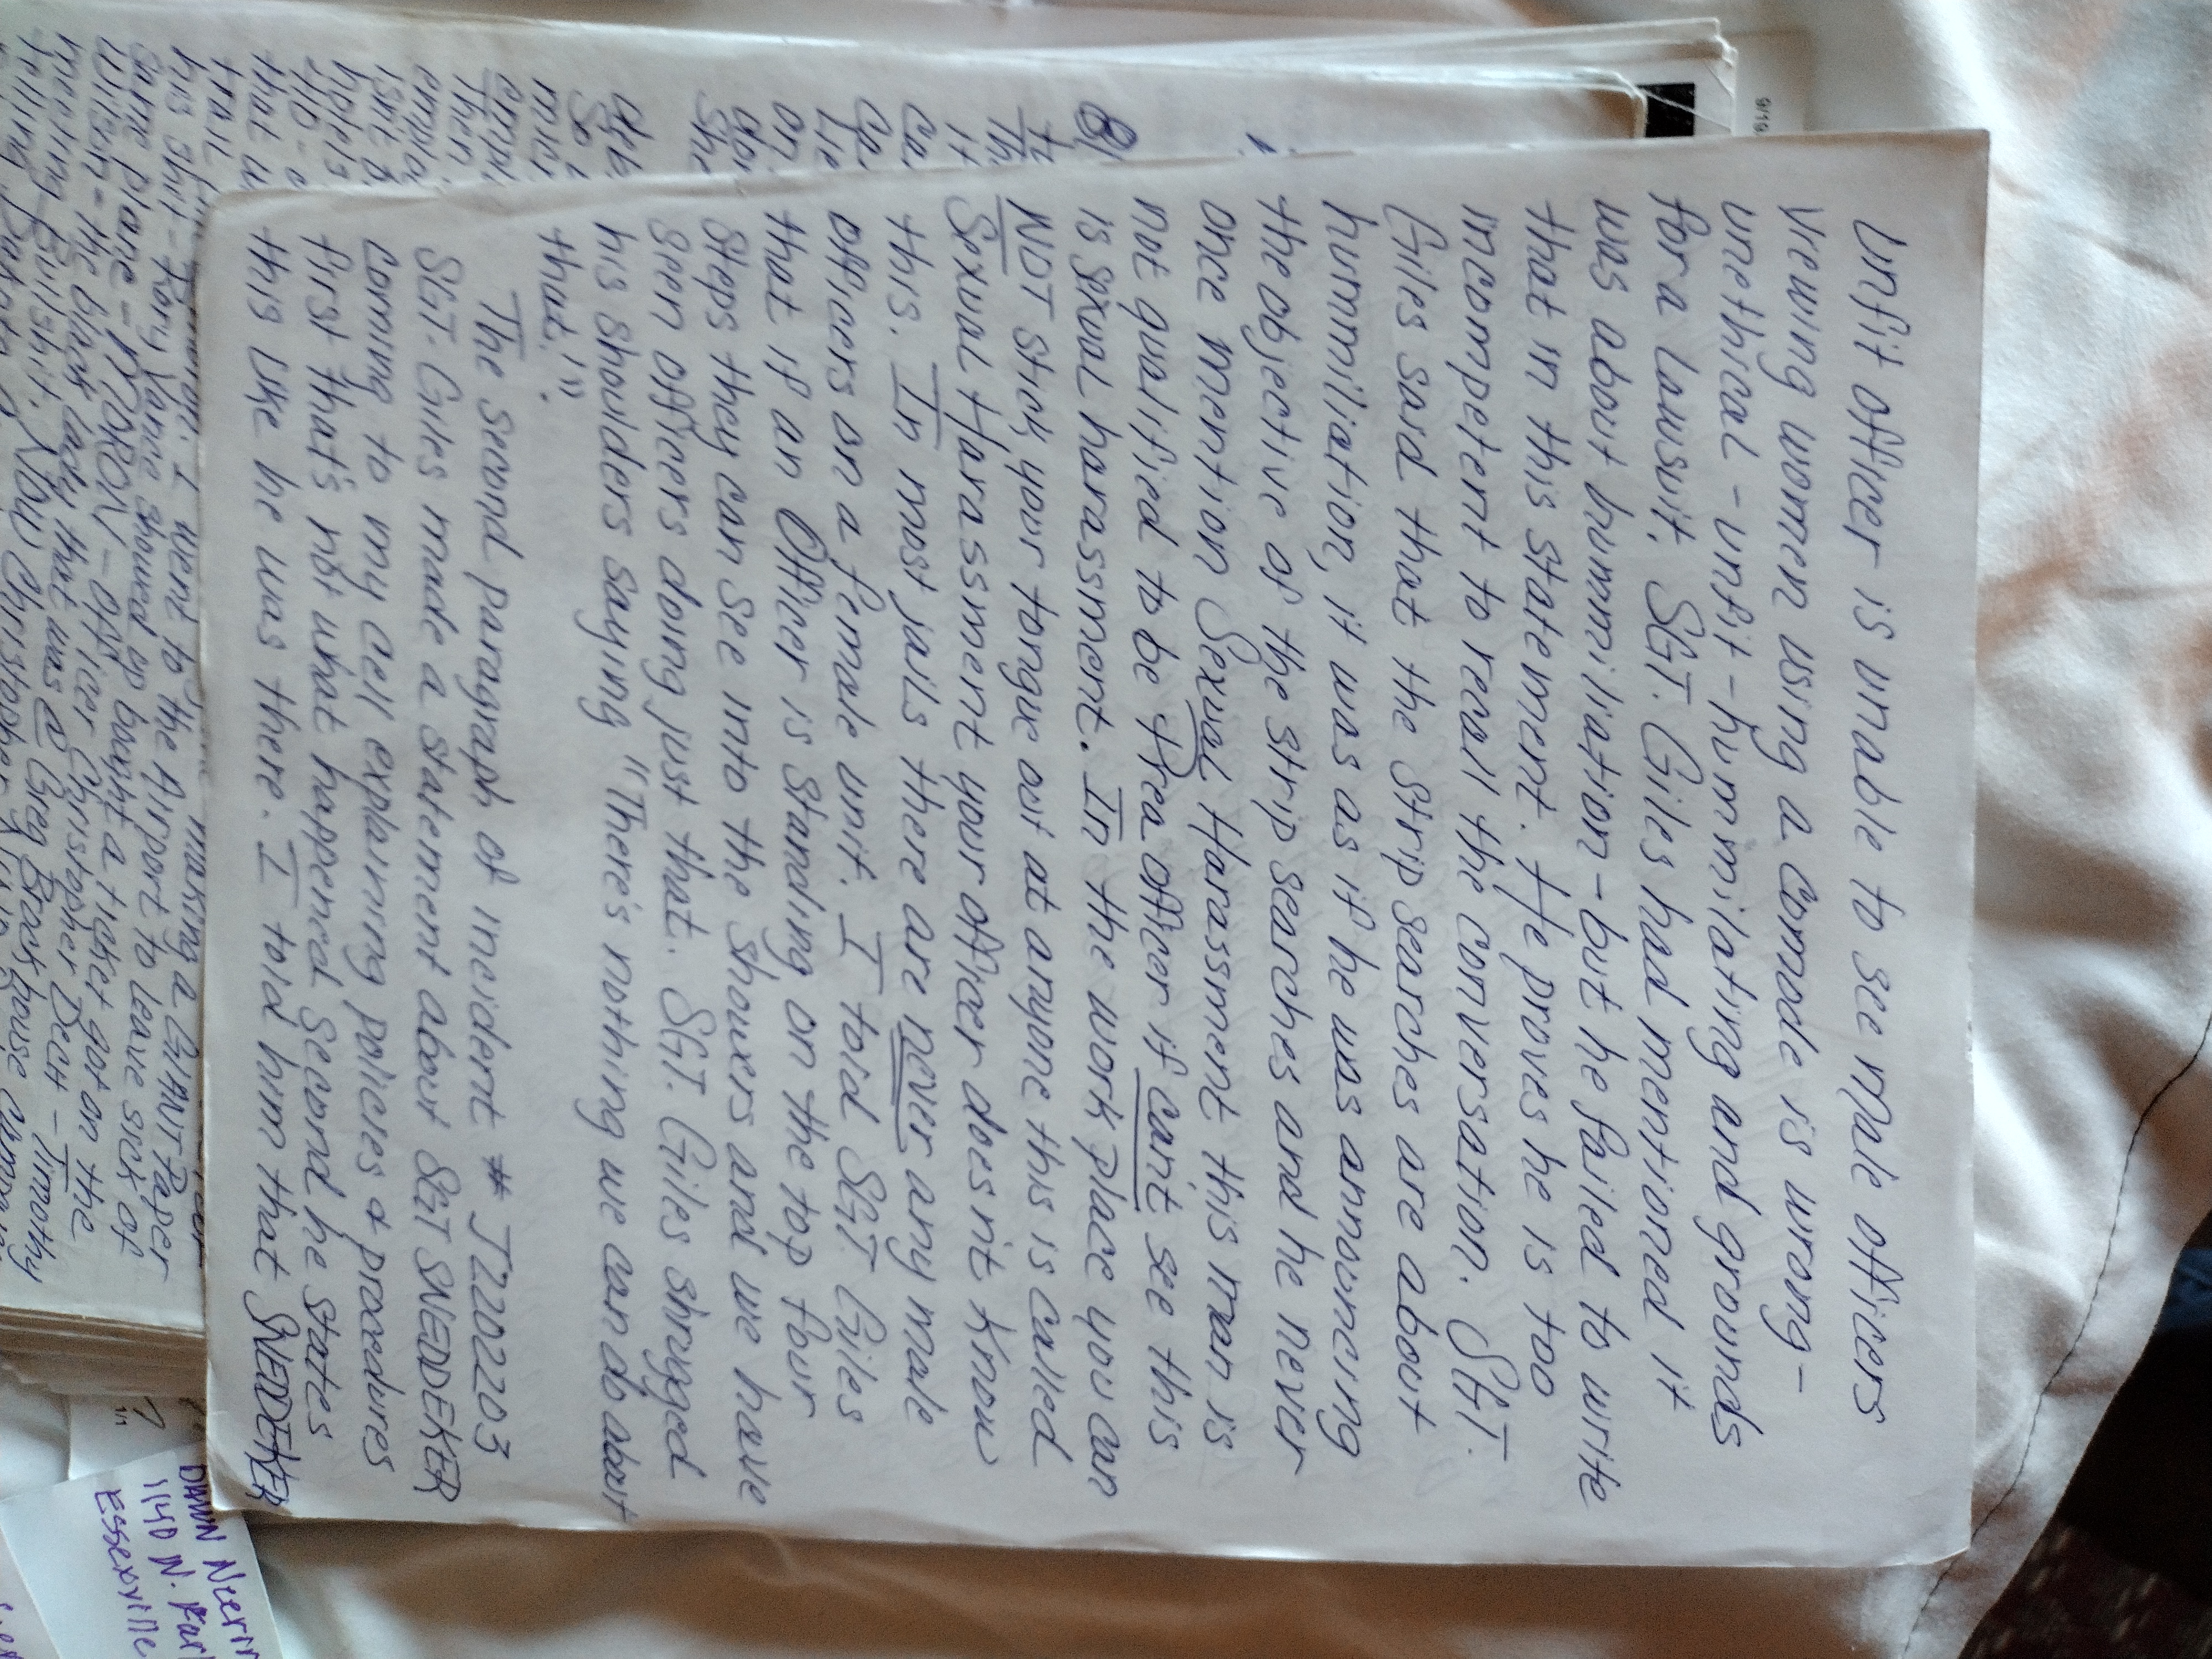 unfit officer is unable to see male officers
viewing women using a comode is wrong -
unethical - unfit - hummilating and grounds
for a lawsuit, SGT. Giles had mentioned it
was about hummiliation - but he failed to write
that in this statement. He proves he is too
incompetent to recall the conversation. SGT.
Giles said that the strip searches are about
hummiliation, it was as if he was announcing
the objective of the strip searches and he never
once mention Sexual Harassment this man is
not qualified to be Prea officer if cant see this
is sexual harassment. In the work place you can
NOT stick your tongue out at anyone this is called
Sexual Harassment your officer doesnt know
this. In most jails there are never any male
officers on a female unit. I told SGT. Giles
that if an Officer is standing on the top four
steps they can see into the showers and we have
seen officers doing just that. SGT. Giles shrugged
his shoulders saying "There's nothing we can do about
that."
The second paragraph of incident # J2202203
SGT. Giles made a statement about SGT SNEDDEKER
coming to my cell explaining policies & procedures
first that's not what happened second he states
this like he was there. I told him that SNEDDEKER
making a GIANT Paper
trail
I went to the Airport to leave sick of
his shit - Rory Vance showed up bought a ticket got on the
same plane - MORON - officer Christopher Deck - Timothy
Wilson - the black lady that was @ Greg Brookhouse
meeting Bullshit. Now Christopher
8)
9/19
7
1/1
1140 N.
Essexville